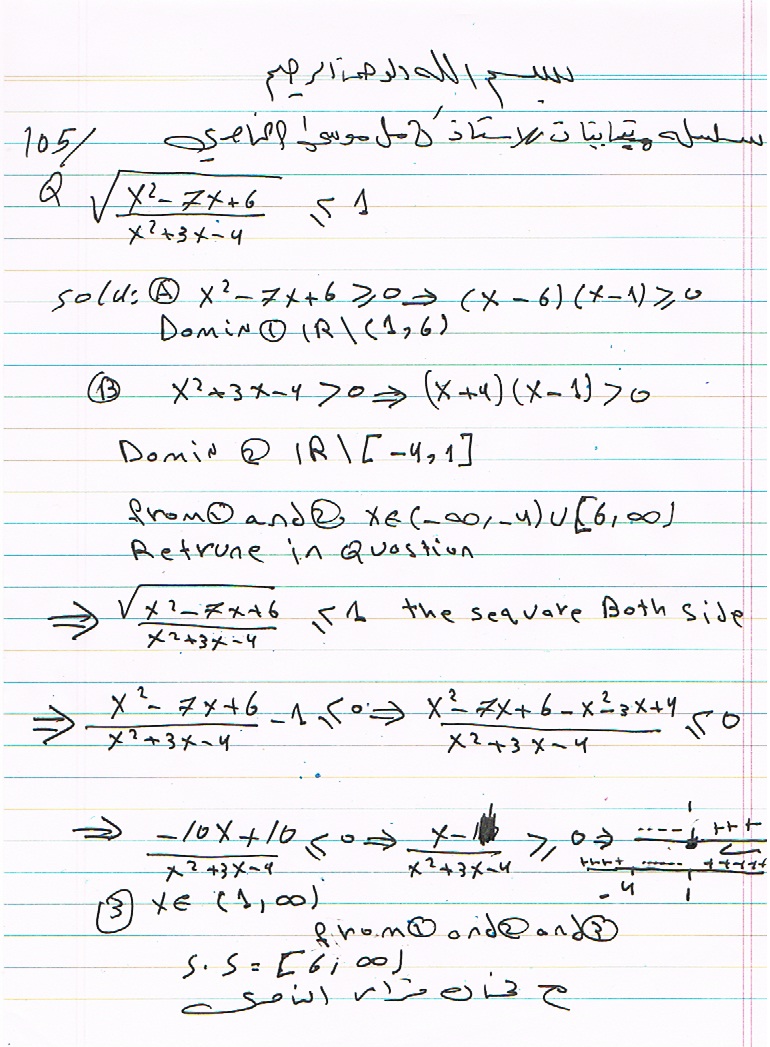 بسم الله الرحمن الرحيم
105/ سلسله متباينات للاستاذ كامل موسى الناصري
Q √(x²-7x+6 / x²+3x-4) ≤ 1
sold: Ⓐ x²-7x+6 ≥ 0 ⇒ (x-6)(x-1) ≥ 0
Domin ① IR\(1,6)
Ⓑ x²+3x-4 > 0 ⇒ (x+4)(x-1) > 0
Domin ② IR\[-4,1]
from① and② x∈(-∞,-4)∪[6,∞)
Retrune in Quostion
⇒ √(x²-7x+6 / x²+3x-4) ≤ 1 the sequare Both side
⇒ (x²-7x+6)/(x²+3x-4) -1 ≤ 0 ⇒ (x²-7x+6-x²-3x+4)/(x²+3x-4) ≤ 0
⇒ (-10x+10)/(x²+3x-4) ≤ 0 ⇒ (x-1)/(x²+3x-4) ≥ 0 ⇒ ---- | +++
++++ ...... +++++
-4 1
③ x∈(1,∞)
from① and② and③
S.S = [6, ∞)